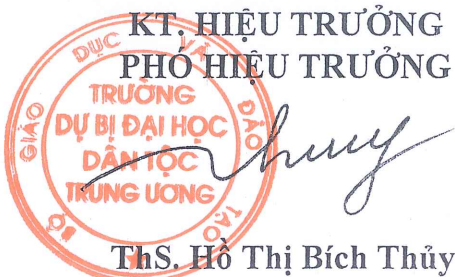 KT. HIỆU TRƯỞNG
PHÓ HIỆU TRƯỞNG
BỘ GIÁO DỤC VÀ ĐÀO TẠO
TRƯỜNG
DỰ BỊ ĐẠI HỌC
DÂN TỘC
TRUNG ƯƠNG
Thuy
ThS. Hồ Thị Bích Thủy